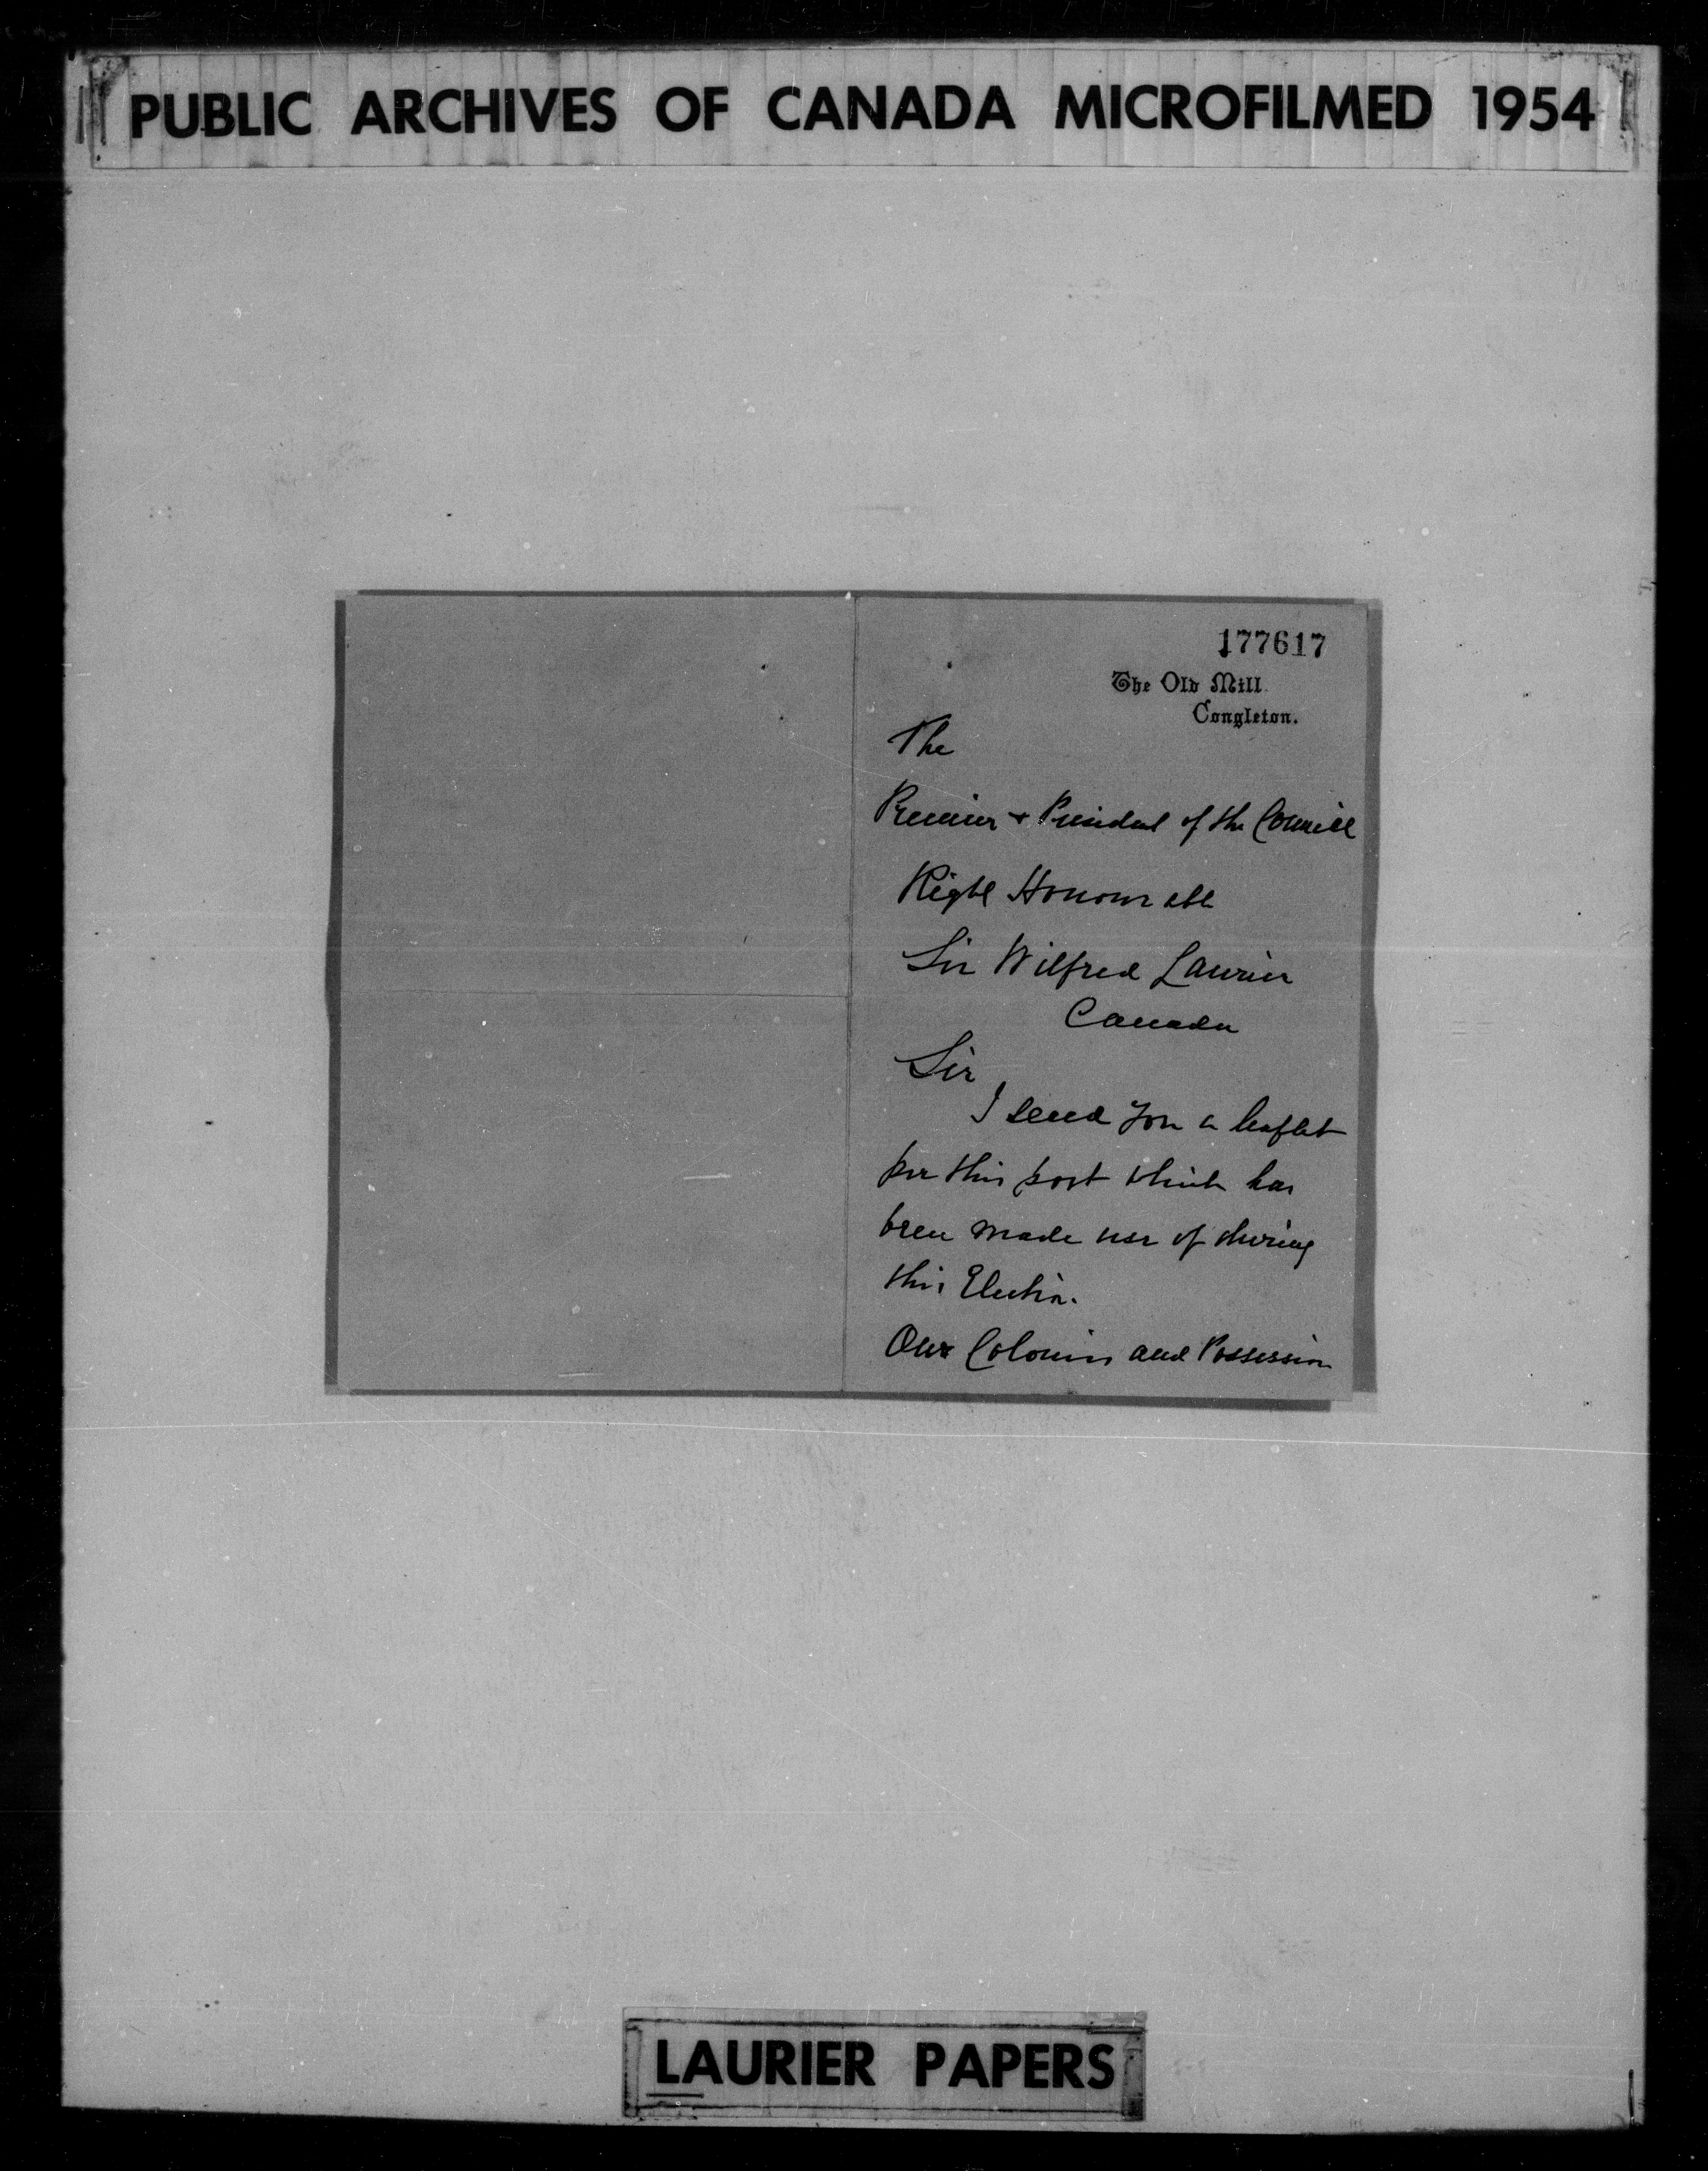 PUBLIC ARCHIVES OF CANADA MICROFILMED 1954
177617
The Old Mill
Congleton.
The
Premier + President of the Council
Right Honourable
Sir Wilfred Laurier
Canada
Sir
I send you a leaflet
per this post which has
been made use of during
this Election.
Our Colonies and Possession
LAURIER PAPERS